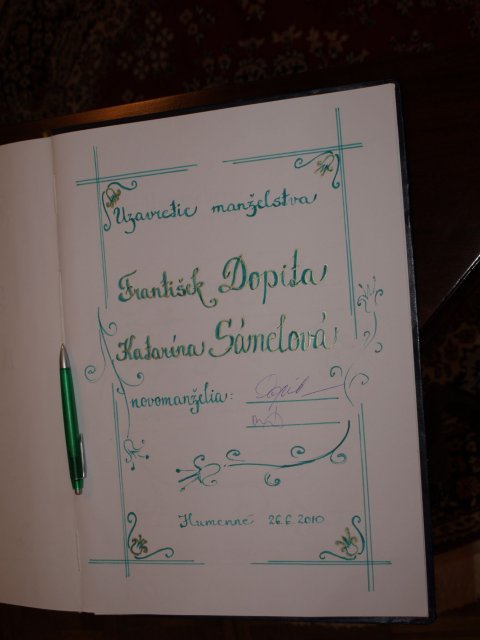 Uzavretie manželstva
František Dopita
Katarína Sámelová
novomanželia:
Humenné 26.6.2010